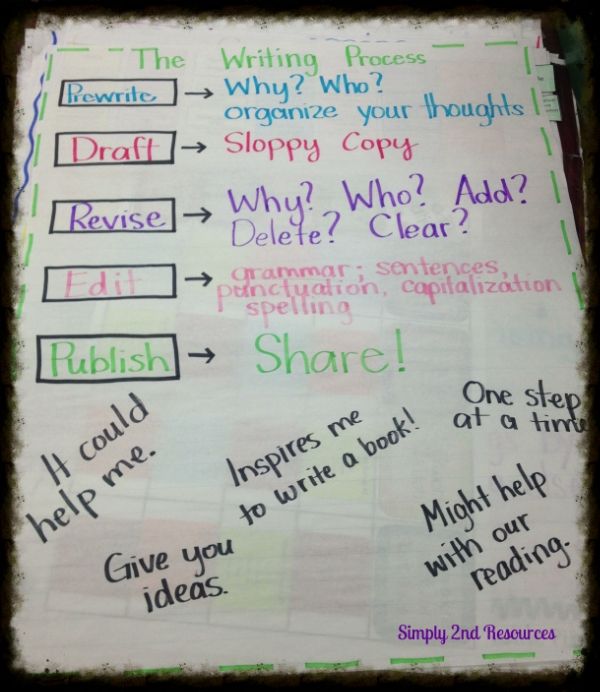 The Writing Process
Prewrite → Why? Who?
organize your thoughts
Draft → Sloppy Copy
Revise → Why? Who? Add?
Delete? Clear?
Edit → grammar; sentences,
punctuation, capitalization
spelling
Publish → Share!
It could
help me.
Inspires me
to write a book!
One step
at a time
Give you
ideas.
Might help
with our
reading.
Simply 2nd Resources